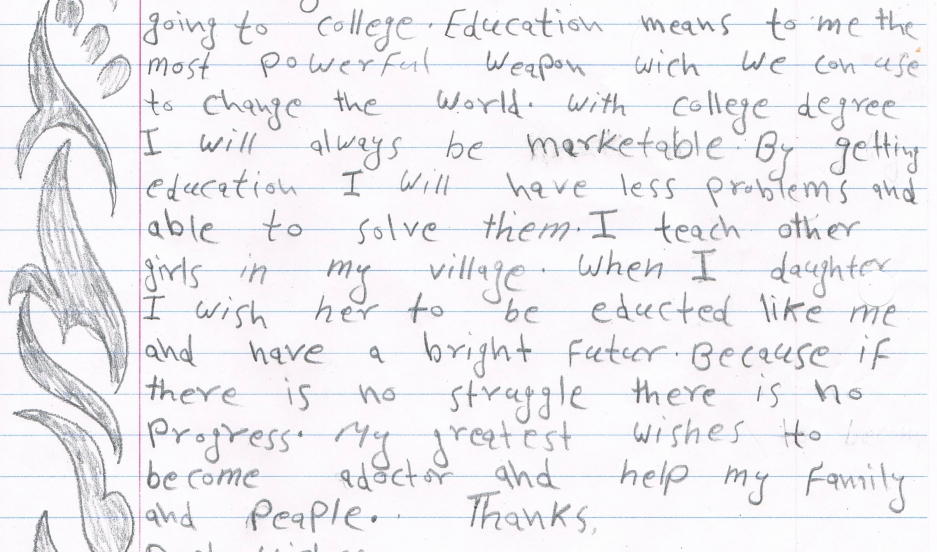 going to college. Education means to me the
most powerful weapon wich we con use
to change the world. with college degree
I will always be marketable. By getting
education I will have less problems and
able to solve them. I teach other
girls in my village. When I daughter
I wish her to be educted like me
and have a bright futur. Because if
there is no struggle there is no
progress. My greatest wishes to
become adoctor and help my family
and peaple. Thanks,